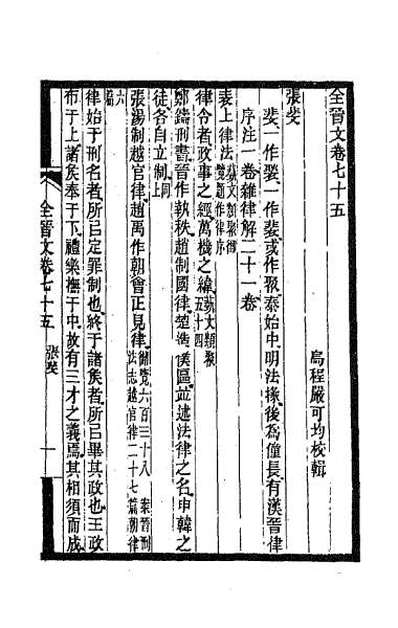 全晉文卷七十五
烏程嚴可均校輯
張斐
斐一作裴一作裴或作聚泰始中明法掾後為僮長有漢晉律
序注一卷雜律解二十一卷
表上律法藝文類聚御覽題作律序
律令者政事之經萬機之緯藝文類聚五十四
鄭鑄刑書晉作執秩趙制國律楚造僕區並述法律之名申韓之
徒各自立制上同
張湯制越官律趙禹作朝會正見律御覽六百三十八案晉刑法志越官律二十七篇朝律
六篇
律始于刑名者所㠯定罪制也終于諸矦者所㠯畢其政也王政
布于上諸矦奉于下禮樂撫于中故有三才之義焉其相須而成
全晉文卷七十五 張斐 一